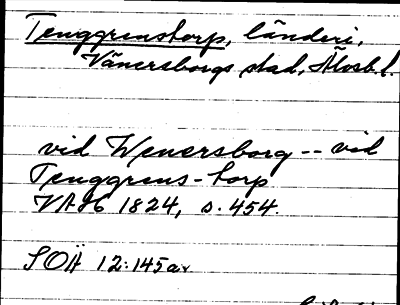 Tenggrenstorp, länderi,
Vänersborgs stad, Älvsb. l.
vid Wenersborg -- vid
Tenggrens-torp
VAH 1824, s. 454.
SOÄ 12:145 av